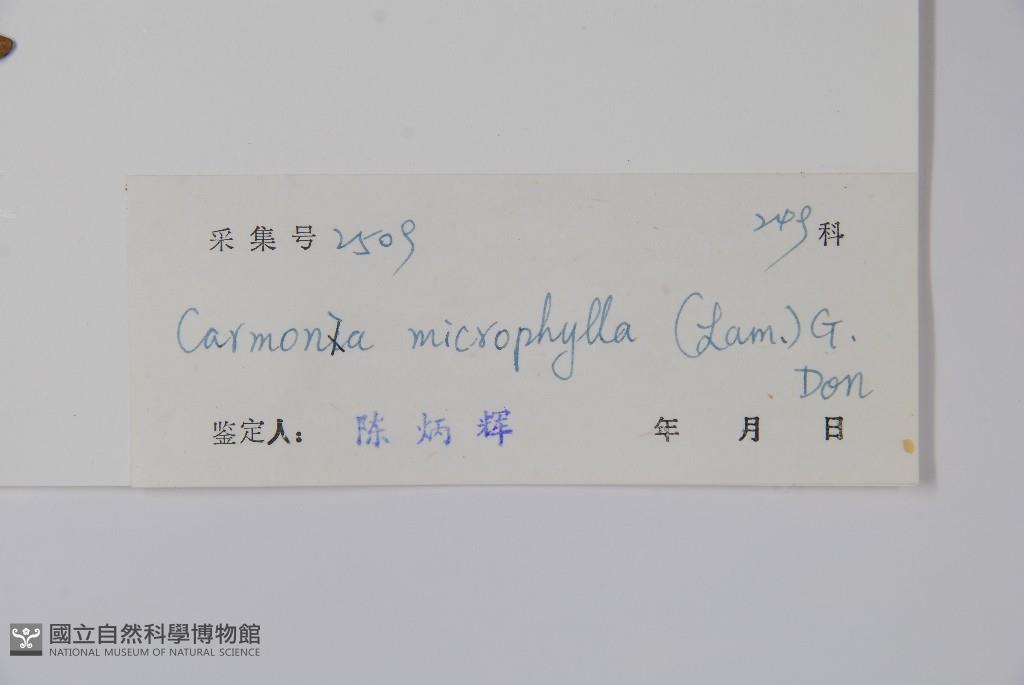 采集号 2509 249 科
Carmona microphylla (Lam.) G.
Don
鉴定人: 陈炳辉 年 月 日
國立自然科學博物館
NATIONAL MUSEUM OF NATURAL SCIENCE